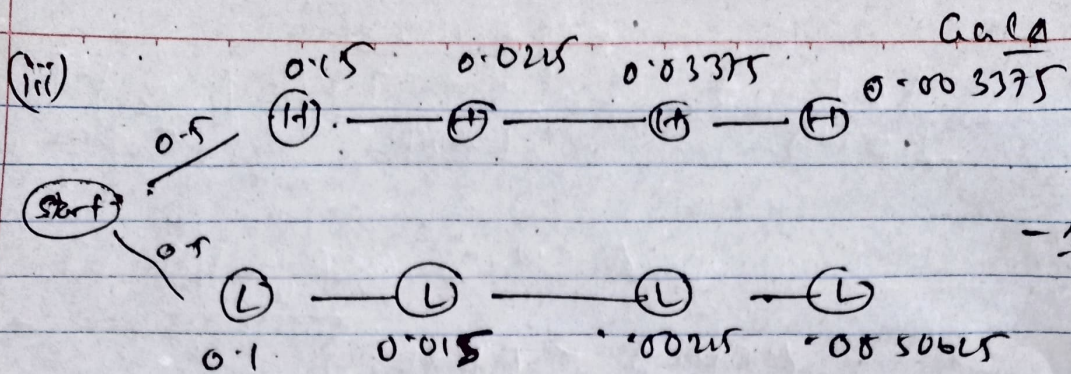 GGCA
(iii) 0.15 0.0225 0.03375 0.003375
0.5 H H H H
Start
0.5 L L L L
0.1 0.015 .00225 .0050625